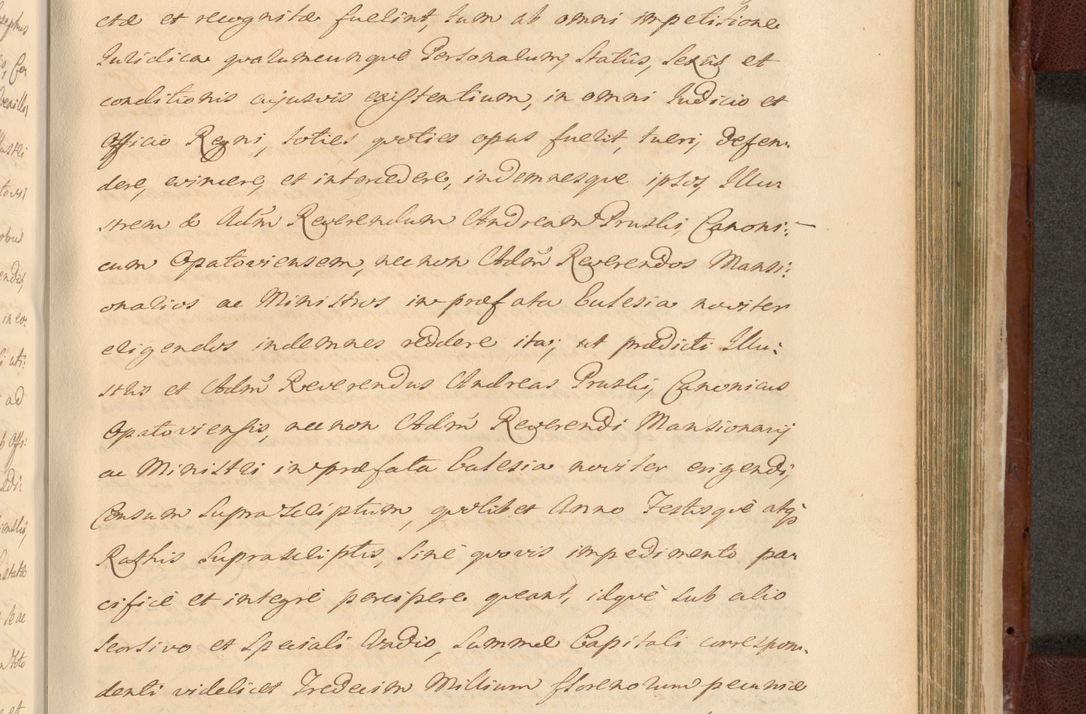 ctæ et recognitæ fuerint, tum ab omni impetitione
Iuridica quarumcunque Personarum, Status, Sexus et
conditionis cujusvis existentium, in omni Iudicio et
Officio Regni, toties quoties opus fuerit, tueri, defen-
dere, evincere, et intercedere, indemnesque ipsos, Illu-
strem & Adm̃ Reverendum Andream Pruski, Canoni:
cum Opatoviensem, nec non Adm̃ Reverendos Mansi:
onarios ac Ministros in præfata Ecclesia noviter
erigendos indemnes reddere, ita, ut prædicti Illu:
stris et Adm̃ Reverendus Andreas Pruski, Canonicus
Opatoviensis, nec non Adm̃ Reverendi Mansionarij
ac Ministri in præfata Ecclesia noviter erigendi,
Censum Suprascriptum, quolibet Anno Festisque atq̃
Rathis Suprascriptis, Sine quovis impedimento pa-
cificè et integrè percipere queant, idquè sub alio
Seorsivo et Speciali Vadio, Summæ Capitali correspon-
denti videlicet Tredecim Millium florenorum pecuniæ